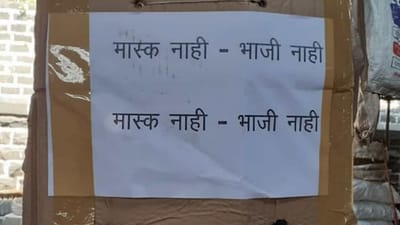 मास्क नाही - भाजी नाही
मास्क नाही - भाजी नाही